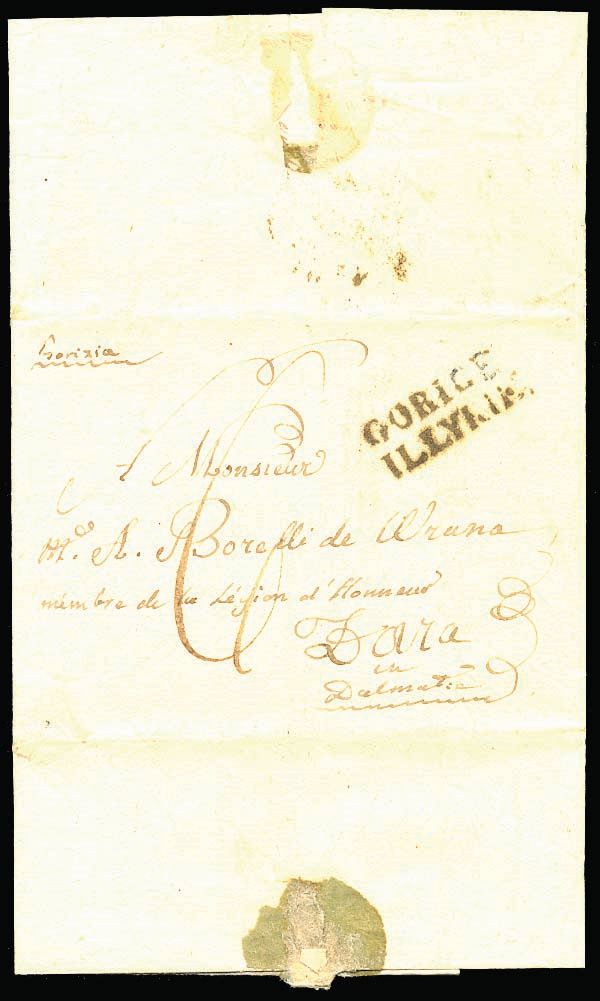 Gorizia
GORICE
ILLYRIE
A Monsieur
Mr. A. Borelli de Wrana
membre de la Légion d'Honneur
Zara
in
Dalmatie